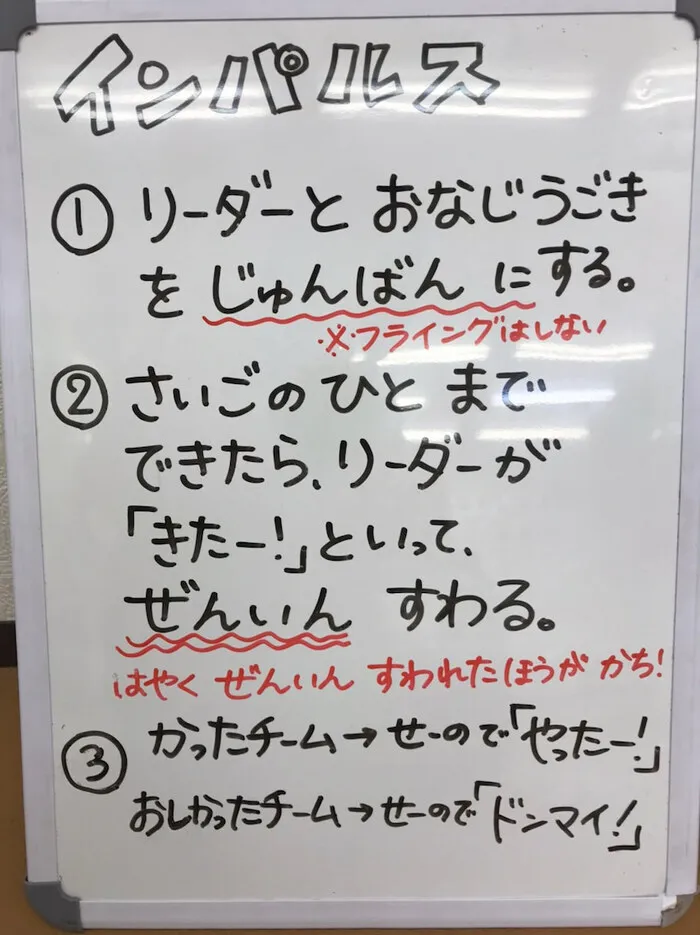 インパルス
① リーダーと おなじうごき
を じゅんばん にする。
※フライングはしない
② さいごの ひと まで
できたら、リーダーが
「きたー!」といって、
ぜんいん すわる。
はやく ぜんいん すわれたほうが かち!
③ かったチーム→せーので「やったー!」
おしかったチーム→せーので「ドンマイ!」